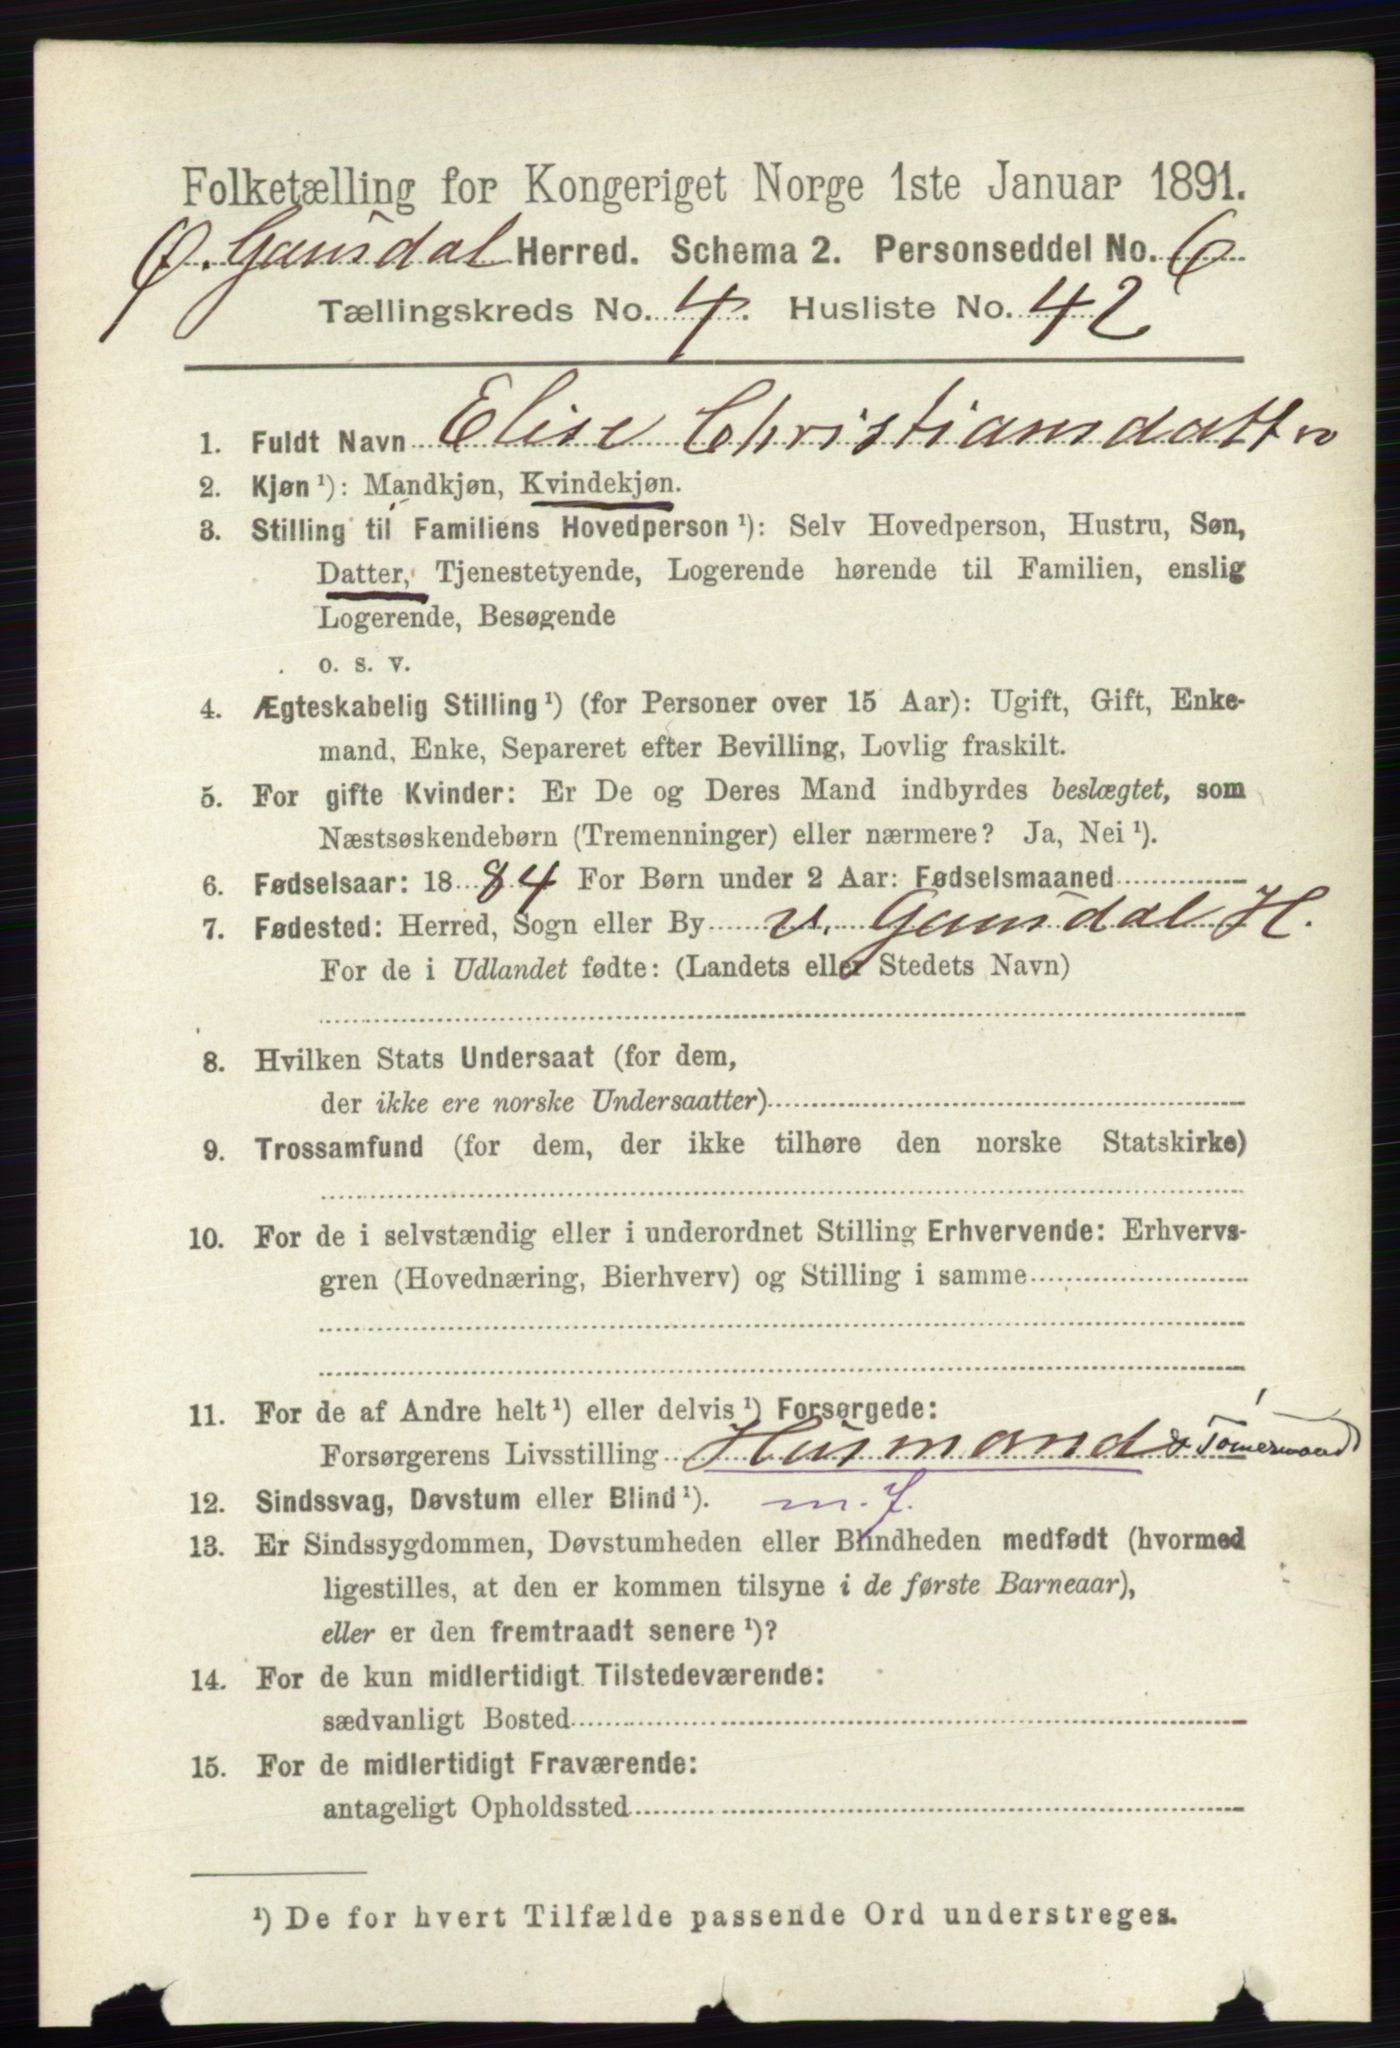 Folketælling for Kongeriget Norge 1ste Januar 1891.
Ø. Gausdal Herred. Schema 2. Personseddel No. 6
Tællingskreds No. 4. Husliste No. 42
1. Fuldt Navn Elise Christiansdatter
2. Kjøn ¹): Mandkjøn, Kvindekjøn.
3. Stilling til Familiens Hovedperson ¹): Selv Hovedperson, Hustru, Søn,
Datter, Tjenestetyende, Logerende hørende til Familien, enslig
Logerende, Besøgende
o. s. v.
4. Ægteskabelig Stilling ¹) (for Personer over 15 Aar): Ugift, Gift, Enke-
mand, Enke, Separeret efter Bevilling, Lovlig fraskilt.
5. For gifte Kvinder: Er De og Deres Mand indbyrdes beslægtet, som
Næstsøskendebørn (Tremenninger) eller nærmere? Ja, Nei ¹).
6. Fødselsaar: 1884 For Børn under 2 Aar: Fødselsmaaned
7. Fødested: Herred, Sogn eller By v. Gausdal H.
For de i Udlandet fødte: (Landets eller Stedets Navn)
8. Hvilken Stats Undersaat (for dem,
der ikke ere norske Undersaatter)
9. Trossamfund (for dem, der ikke tilhøre den norske Statskirke)
10. For de i selvstændig eller i underordnet Stilling Erhvervende: Erhvervs-
gren (Hovednæring, Bierhverv) og Stilling i samme
11. For de af Andre helt ¹) eller delvis ¹) Forsørgede:
Forsørgerens Livsstilling Husmand & Tømermand
12. Sindssvag, Døvstum eller Blind ¹). m. J.
13. Er Sindssygdommen, Døvstumheden eller Blindheden medfødt (hvormed
ligestilles, at den er kommen tilsyne i de første Barneaar),
eller er den fremtraadt senere ¹)?
14. For de kun midlertidigt Tilstedeværende:
sædvanligt Bosted
15. For de midlertidigt Fraværende:
antageligt Opholdssted
¹) De for hvert Tilfælde passende Ord understreges.